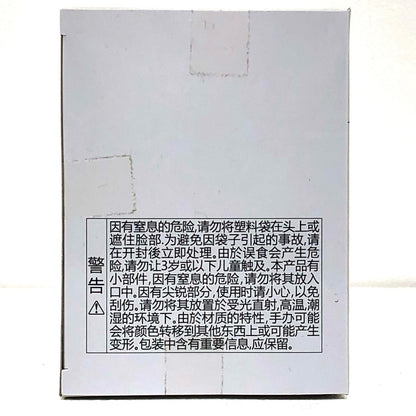 警告⚠
因有窒息的危险,请勿将塑料袋在头上或
遮住脸部.为避免因袋子引起的事故,请
在开封後立即处理。由於误食会产生危
险,请勿让3岁或以下儿童触及。本产品有
小部件,因有窒息的危险,请勿将其放入
口中。因有尖锐部分,使用时请小心,以免
刮伤。请勿将其放置於受光直射,高温,潮
湿的环境下。由於材质的特性,手办可能
会将颜色转移到其他东西上或可能产生
变形。包装中含有重要信息,应保留。